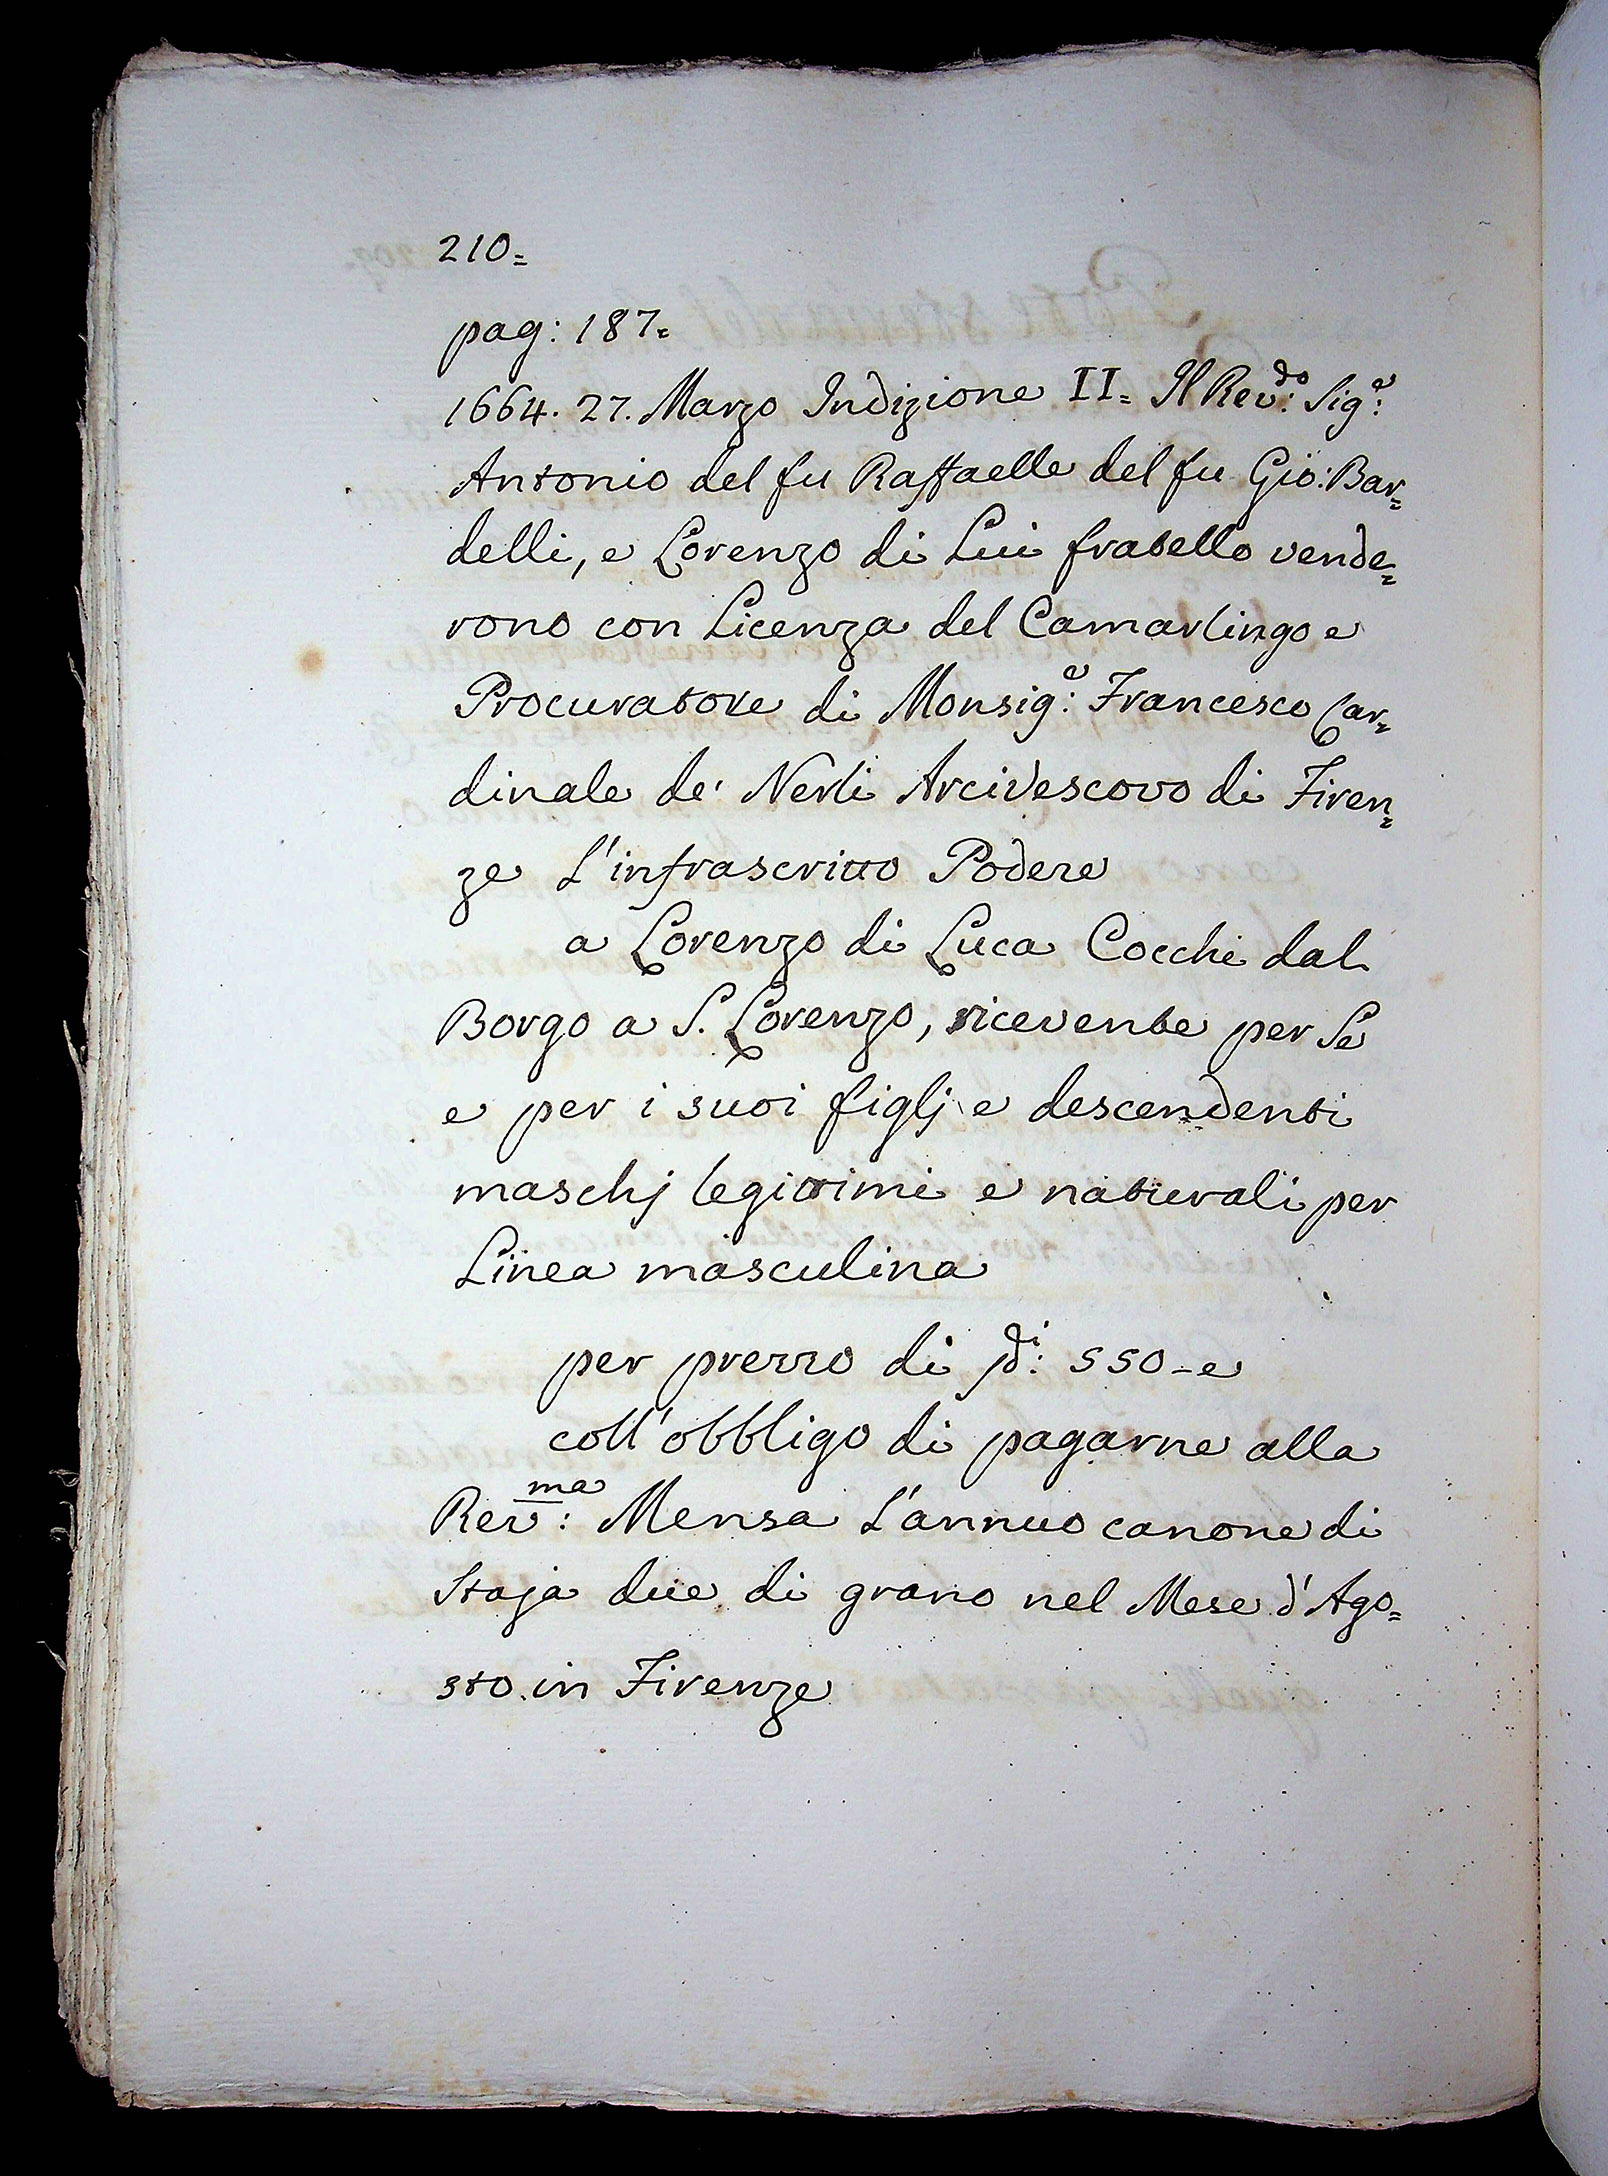 210=
pag: 187=
1664. 27. Marzo Indizione II= Il Rev:do Sig:e
Antonio del fu Raffaelle del fu Gio: Bar=
delli, e Lorenzo di Lui fratello vende=
rono con Licenza del Camarlingo e
Procuratore di Monsig:e Francesco Car=
dinale de' Nerli Arcivescovo di Firen=
ze L'infrascritto Podere
a Lorenzo di Luca Cocchi dal
Borgo a S. Lorenzo, ricevente per Se
e per i suoi figlj e descendenti
maschj legittimi e naturali per
Linea masculina
per prezzo di di: 550-e
coll'obbligo di pagarne alla
Rev:ma Mensa L'annuo canone di
Staja due di grano nel Mese d'Ago=
sto in Firenze